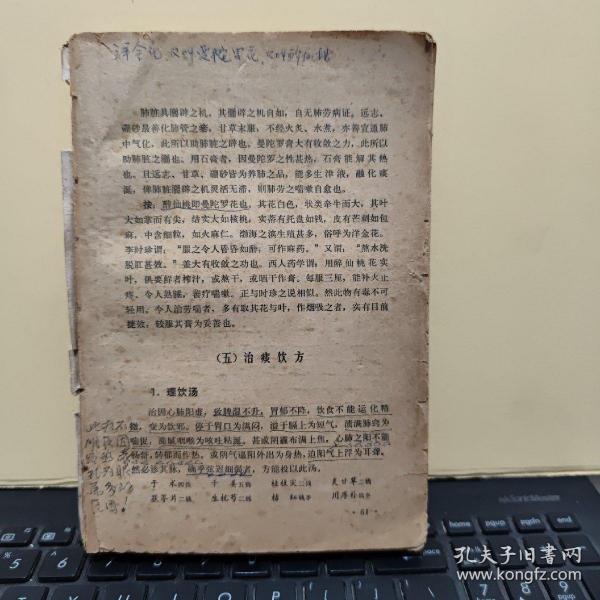 肺脏具翕辟之机，其翕辟之机自如，自无肺劳病证。远志、
硼砂最善化肺管之痰，甘草末服，不经火炙、水煮，亦善宣通肺
中气化，此所以助肺脏之辟也。曼陀罗膏大有收敛之力，此所以
助肺脏之翕也。用石膏者，因曼陀罗之性甚热，石膏能解其热
也。且远志、甘草、硼砂皆为养肺之品，能多生津液，融化痰
涎，俾肺脏翕辟之机灵活无滞，则肺劳之喘嗽自愈也。
按：醉仙桃即曼陀罗花也，其花白色，状类牵牛而大，其叶
大如掌而有尖，结实大如核桃，实蒂有托盘如钱，皮有芒刺如包
麻，中含细粒，如火麻仁。渤海之滨生殖甚多，俗呼为洋金花。
李时珍谓：“服之令人昏昏如醉，可作麻药。”又谓：“熬水洗
脱肛甚效。”盖大有收敛之功也。西人药学谓：用醉仙桃花实
叶，俱要鲜者榨汁，或熬干，或晒干作膏。每服三厘，能补火止
疼、令人熟睡，善疗喘嗽。正与时珍之说相似。然此物有毒不可
轻用。今人治劳喘者，多有取其花与叶，作烟吸之者，实有目前
捷效，较服其膏为妥善也。
（五）治痰饮方
1．理饮汤
治因心肺阳虚，致脾湿不升，胃郁不降，饮食不能运化精
微，变为饮邪。停于胃口为满闷，溢于膈上为短气，渍满肺窍为
喘促，滞腻咽喉为咳吐粘涎。甚或阴霾布满上焦，心肺之阳不能
畅舒，转郁而作热。或阴气逼阳外出为身热，迫阳气上浮为耳聋。
然必诊其脉，确乎弦迟细弱者，方能投以此汤。
于术四钱 干姜五钱 桂枝尖二钱 炙甘草二钱
茯苓片二钱 生杭芍二钱 桔红钱半 川厚朴钱半
·61·
孔夫子旧书网
www.kongfz.com